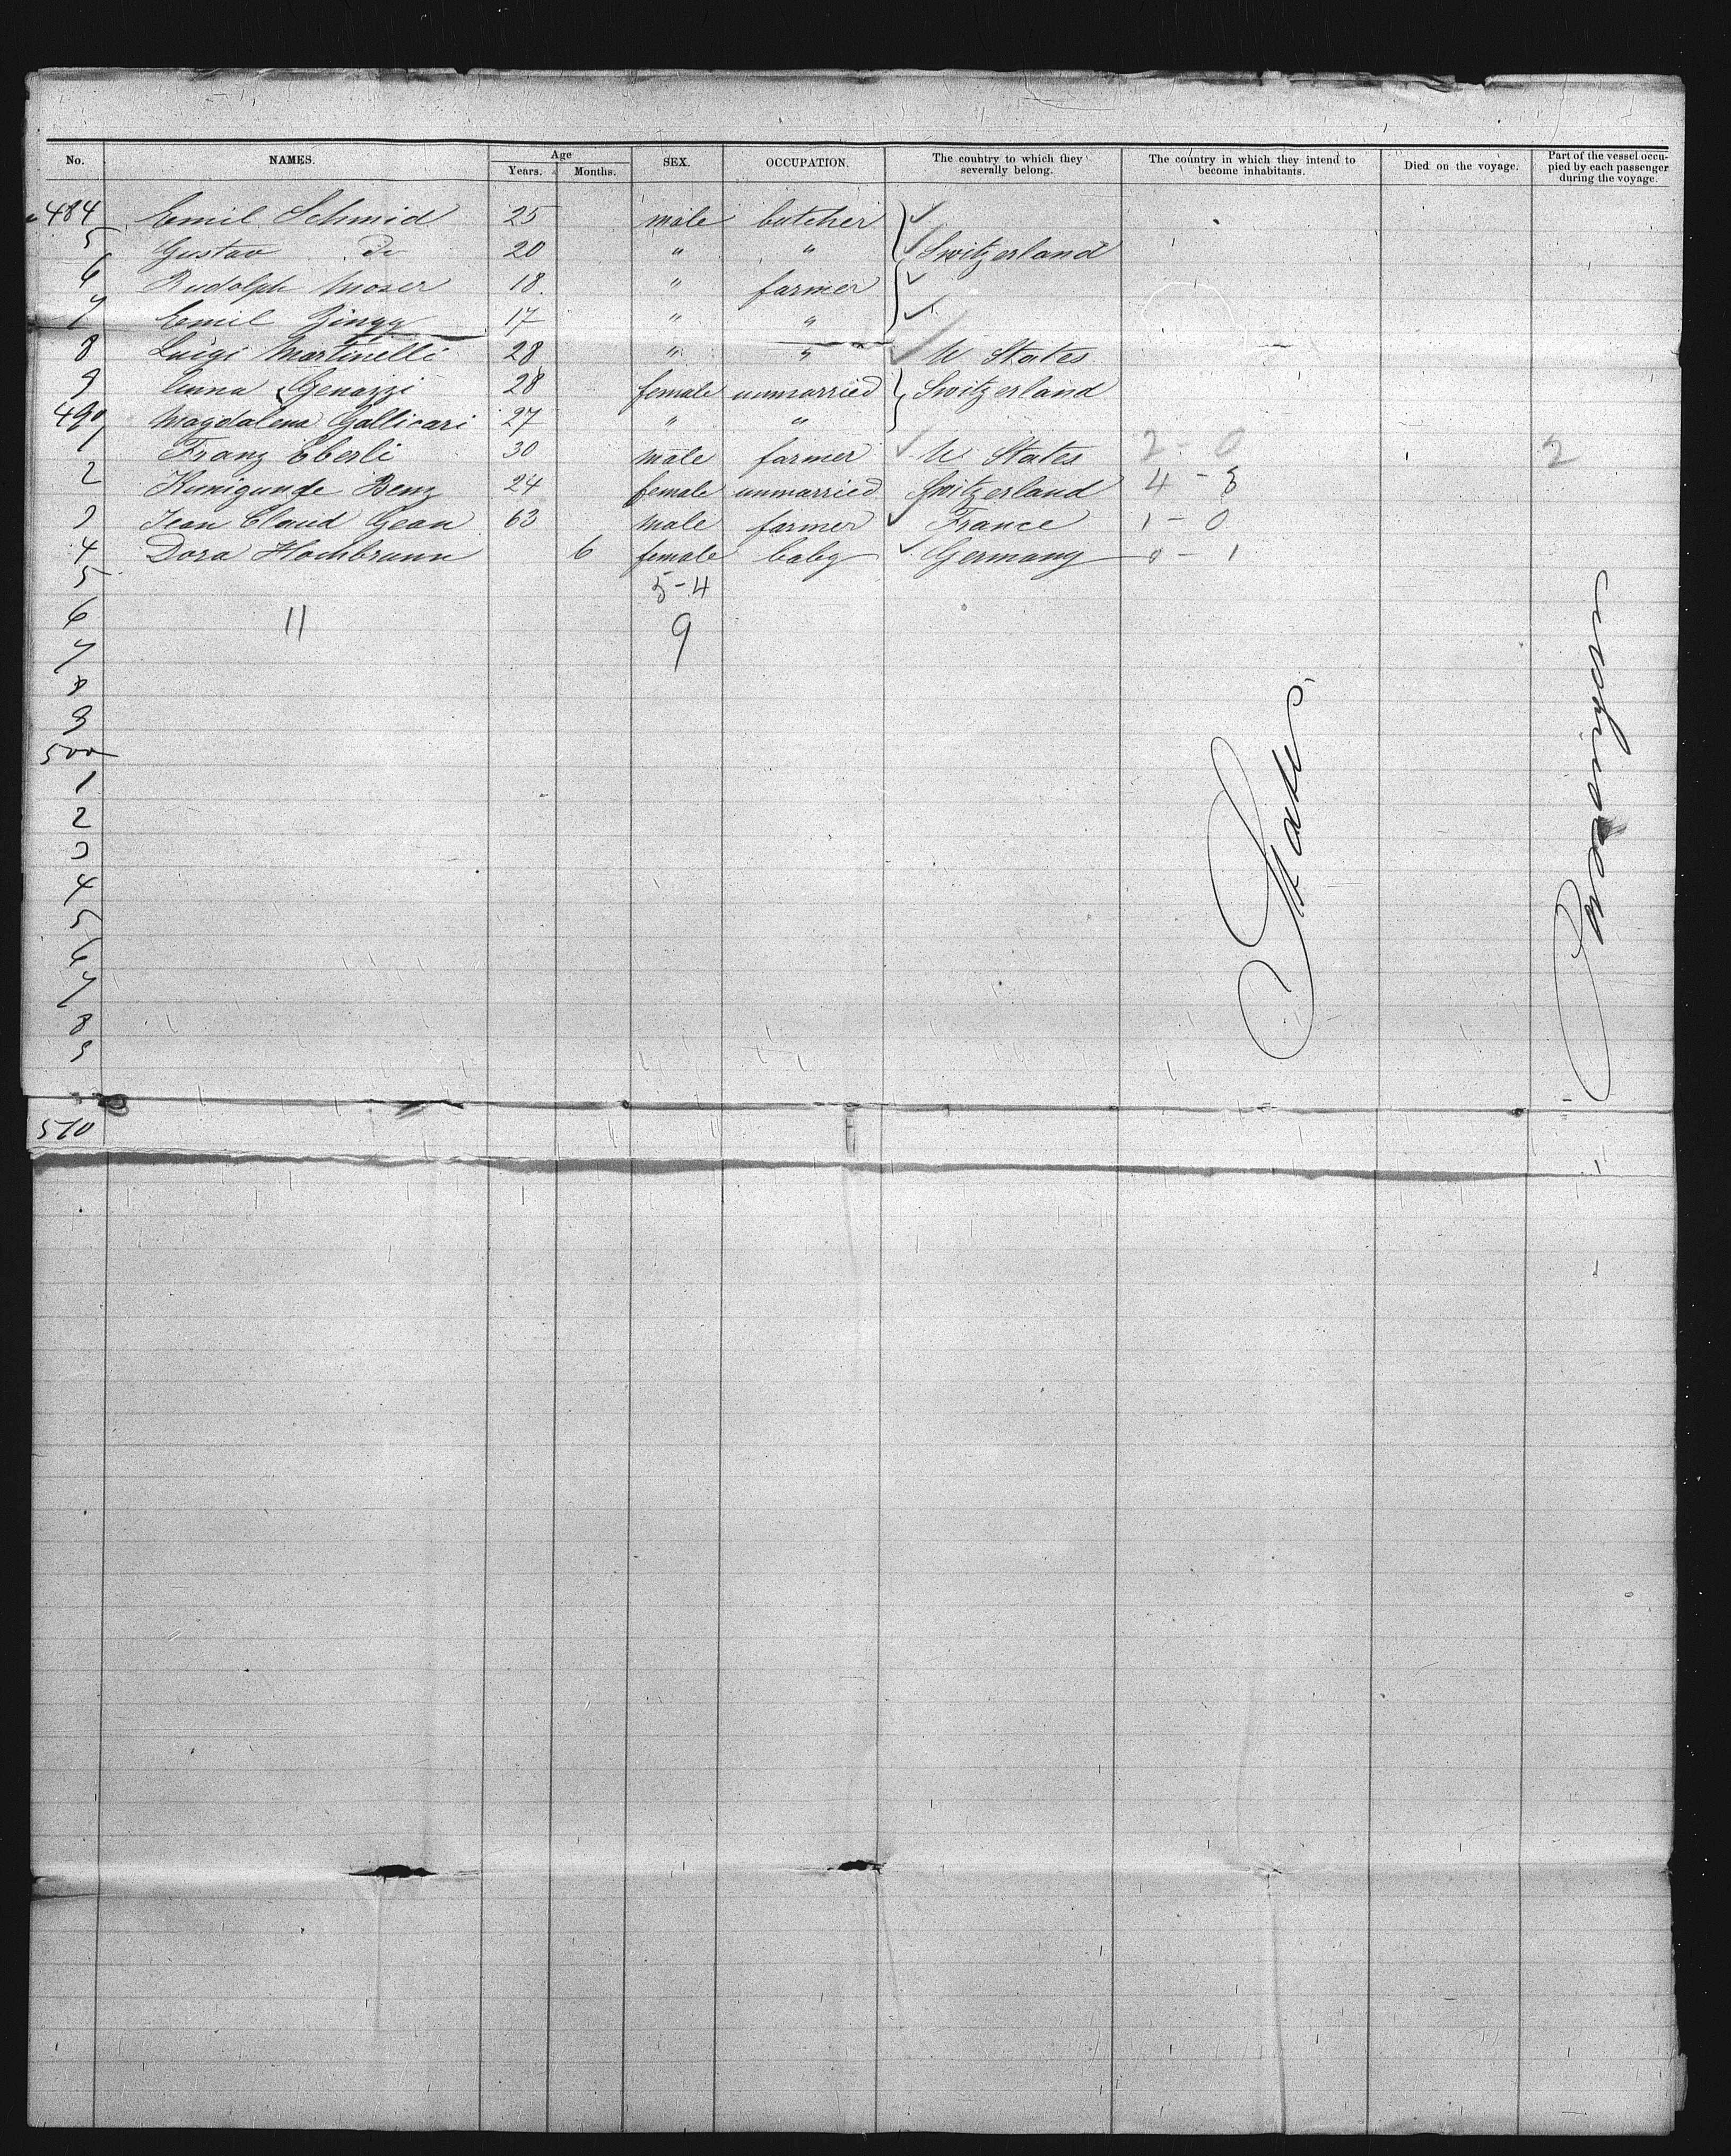 No. NAMES. Age Years. Months. SEX. OCCUPATION. The country to which they severally belong. The country in which they intend to become inhabitants. Died on the voyage. Part of the vessel occupied by each passenger during the voyage.
484 Emil Schmid 25 male butcher
5 Gustav Do 20 " " Switzerland
6 Rudolph Moser 18 " farmer
7 Emil Zingg 17 " "
8 Luigi Martinelli 28 " " U States
9 Anna Genazzi 28 female unmarried Switzerland
490 Magdalena Gallicari 27 " "
1 Franz Eberli 30 male farmer U States 2 - 0 2
2 Kunigunde Benz 24 female unmarried Switzerland 4 - 3
3 Jean Claud Gean 63 male farmer France 1 - 0
4 Dora Hochbrunn 6 female baby Germany 0 - 1
5 5-4
6 11 9
7
8
9
500
1
2
3
4
5
6
7
8
9
510
States